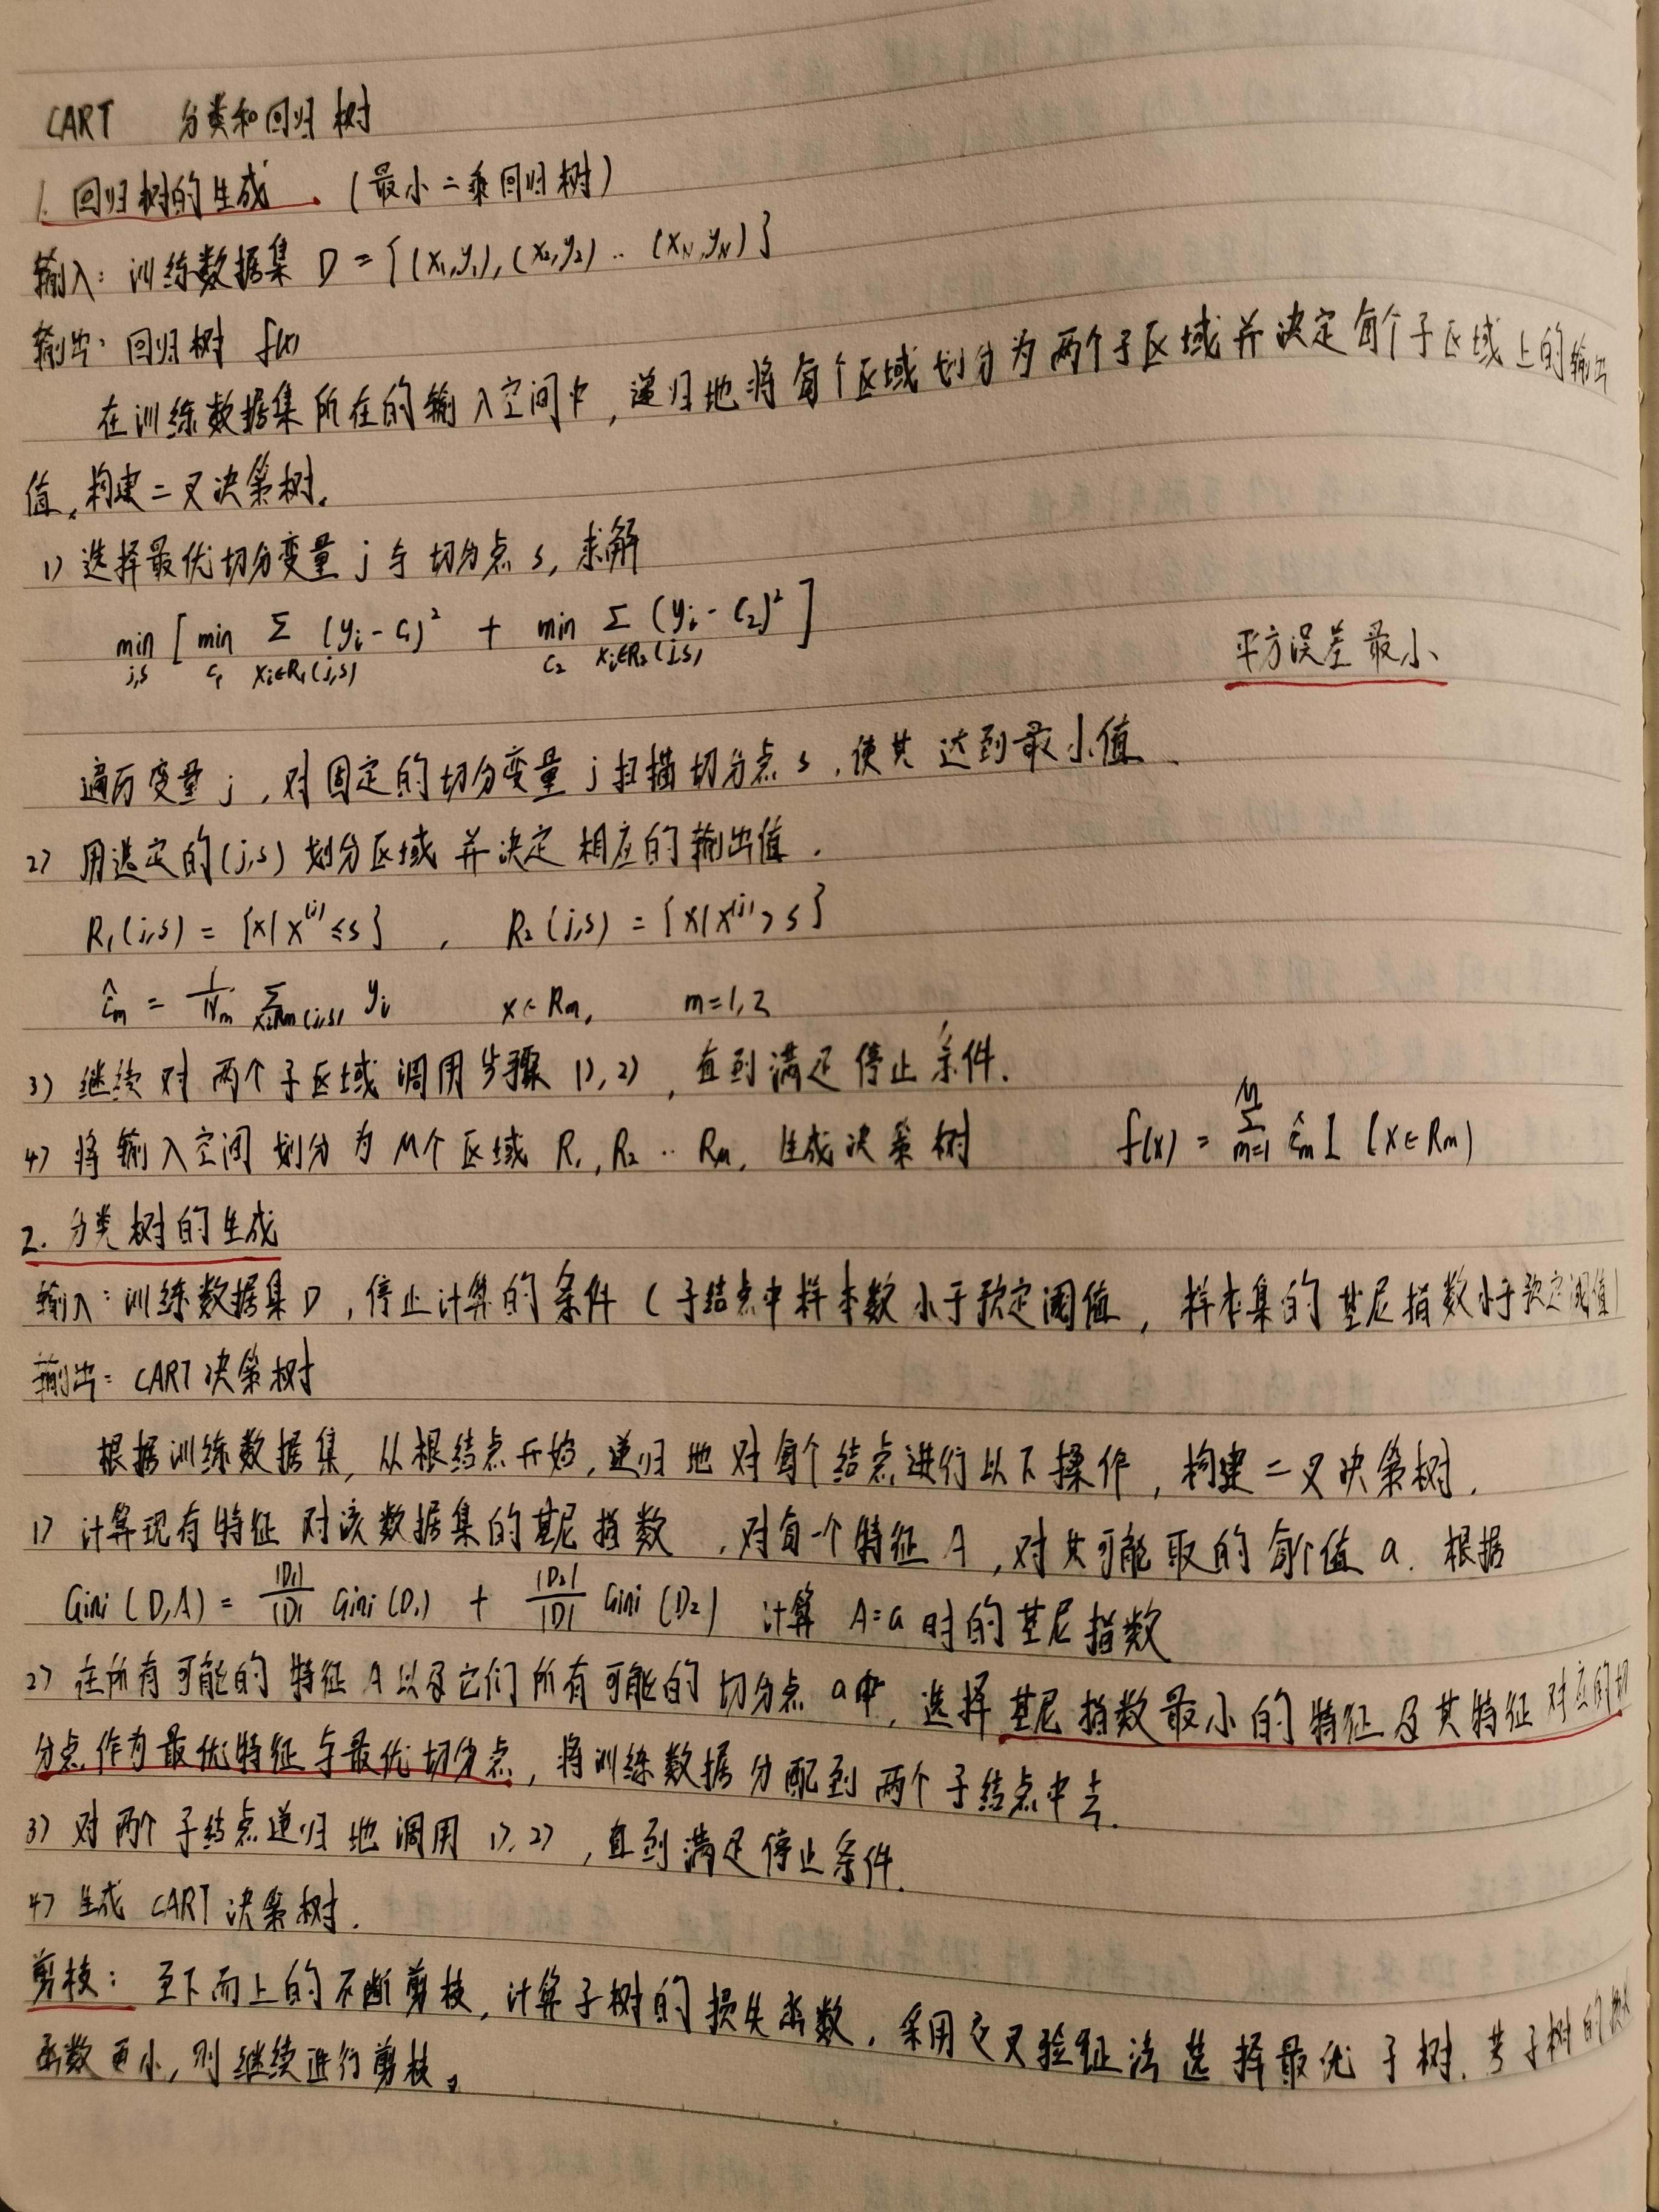 CART 分类和回归树
1. 回归树的生成. (最小二乘回归树)
输入: 训练数据集 D = {(x₁,y₁), (x₂,y₂) .. (x_N,y_N)}
输出: 回归树 f(x)
在训练数据集所在的输入空间中, 递归地将每个区域划分为两个子区域并决定每个子区域上的输出
值, 构建二叉决策树.
1) 选择最优切分变量 j 与切分点 s, 求解
min_{j,s} [ min_{c₁} Σ_{xᵢ∈R₁(j,s)} (yᵢ - c₁)² + min_{c₂} Σ_{xᵢ∈R₂(j,s)} (yᵢ - c₂)² ] 平方误差最小
遍历变量 j, 对固定的切分变量 j 扫描切分点 s, 使其达到最小值.
2) 用选定的(j,s) 划分区域并决定相应的输出值.
R₁(j,s) = {x|x^(j) ≤ s} , R₂(j,s) = {x|x^(j) > s}
ĉ_m = 1/N_m Σ_{xᵢ∈R_m(j,s)} yᵢ x∈R_m, m=1,2
3) 继续对两个子区域调用步骤 1), 2) , 直到满足停止条件.
4) 将输入空间划分为 M个区域 R₁, R₂ .. R_M, 生成决策树 f(x) = Σ_{m=1}^{M} ĉ_m I (x∈R_m)
2. 分类树的生成
输入: 训练数据集 D , 停止计算的条件 (子结点中样本数小于预定阈值, 样本集的基尼指数小于预定阈值)
输出: CART 决策树
根据训练数据集, 从根结点开始, 递归地对每个结点进行以下操作, 构建二叉决策树.
1) 计算现有特征对该数据集的基尼指数 , 对每一个特征 A , 对其可能取的每个值 a. 根据
Gini (D,A) = |D₁|/|D| Gini (D₁) + |D₂|/|D| Gini (D₂) 计算 A=a 时的基尼指数
2) 在所有可能的特征 A 以及它们所有可能的切分点 a中, 选择基尼指数最小的特征及其特征对应的切
分点作为最优特征与最优切分点, 将训练数据分配到两个子结点中去.
3) 对两个子结点递归地调用 1), 2) , 直到满足停止条件.
4) 生成 CART 决策树.
剪枝: 至下而上的不断剪枝, 计算子树的损失函数. 采用交叉验证法选择最优子树. 若子树的损失
函数更小, 则继续进行剪枝。